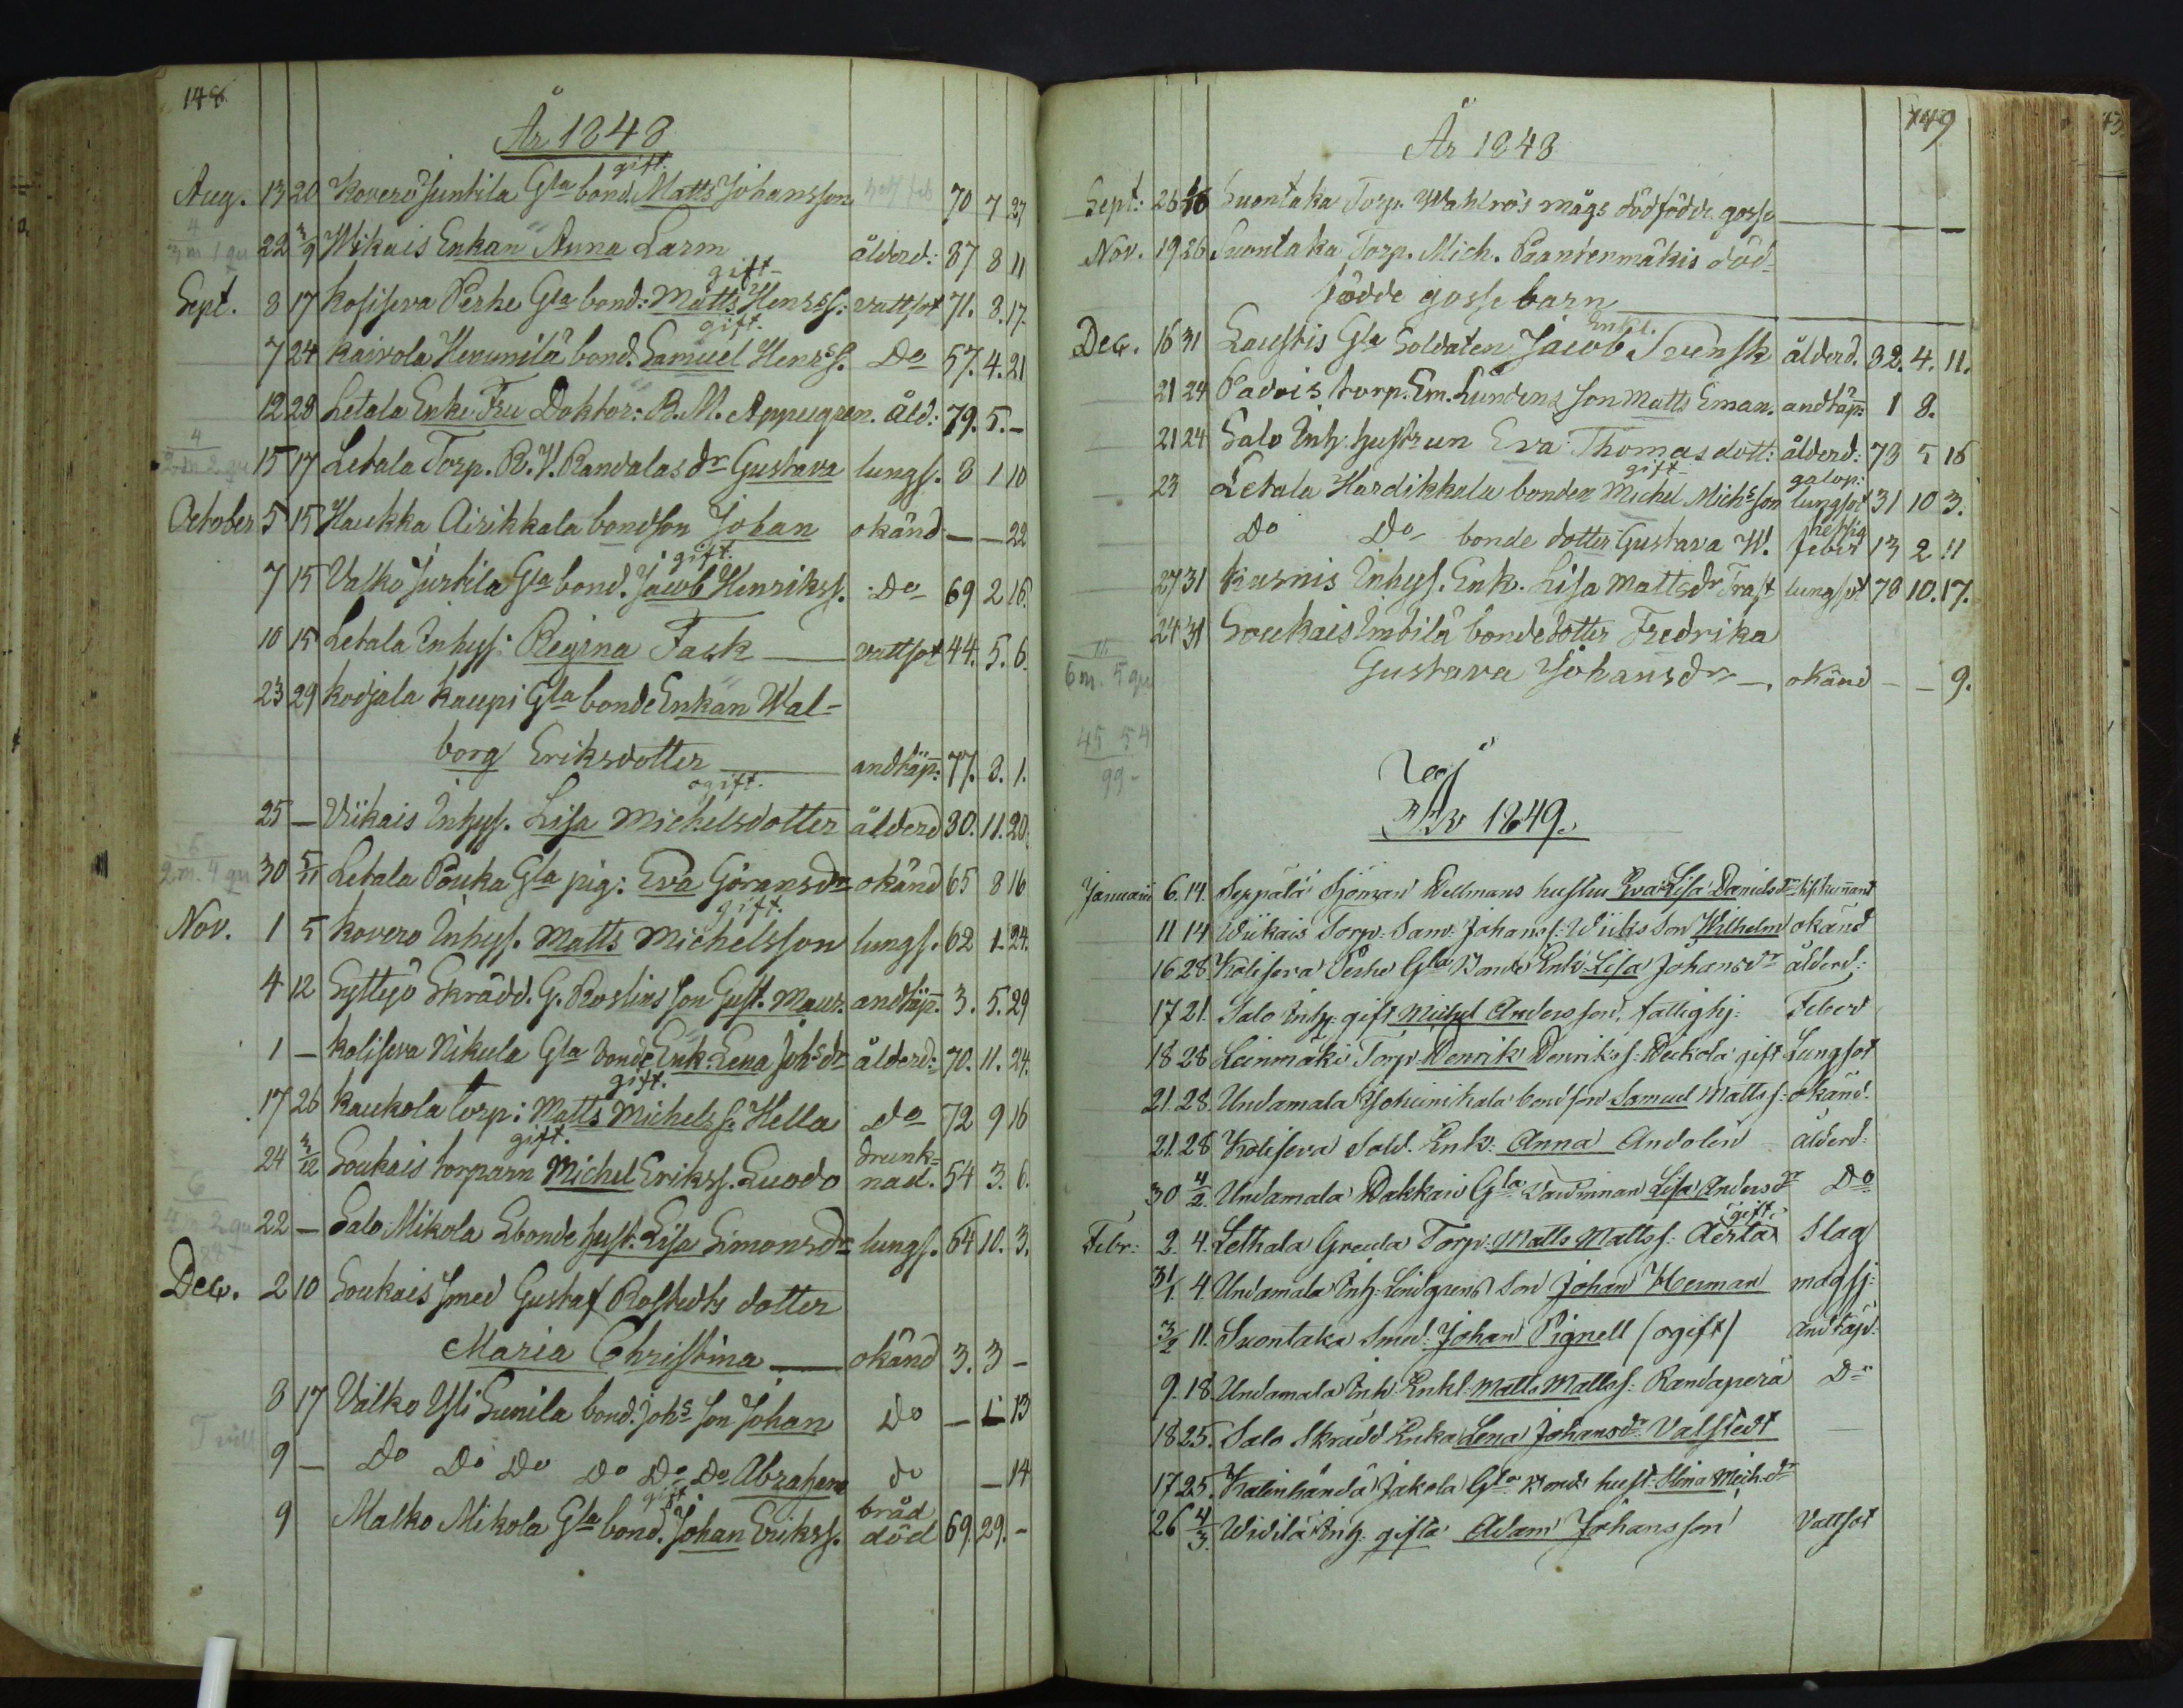 148
År 1848
Aug. 13 20 Kovero Juntila Gla bond. gift. Matts Johansson 70 7 27
22 3/9 Wikais Enkan Anna Larm ålderd: 87 8 11
Sept. 8 17 Koliseva Perhe Gla bond: gift Matts Henrss: vattsot 71. 8. 17.
7 24 Kaivola Henunilä bond. gift. Samuel Henrss. Do 57. 4. 21
12 28 Letala Enke Fru Doktor: R. M. Appelgren. åld: 79. 5. –
15 17 Letala Torp. R. V. Randalas dr Gustava lungs. 8 1 10
October 5 15 Haukka Airikkala bondson Johan okänd – – 22
7 15 Valko Jurtila Gla bond. gift. Jacob Henrikss. Do 69 2 16.
10 15 Letala Inhys: Regina Fack vattsot 44. 5. 6.
23 29 Kodjala Kaupi Gla bonde Enkan Wal-
borg Eriksdotter andtäp: 77. 8. 1.
25 – Viikais Inhys. Lisa Michelsdotter ogift. ålderd 80. 11. 20.
30 5/11 Letala Pouka Gla pig: Eva Göransdr okänd 65 8 16
Nov. 1 5 Kovero Inhys. gift. Matts Michelsson lungs. 62 1. 24.
4 12 Syttyö Skrädd. G. Roslins son Gust. Maur. andtäp. 3. 5. 29
1 – Koliseva Nikula Gla bonde Enk: Lena Johsdr ålderd: 70. 11. 24.
17 26 Kaukola torp: gift. Matts Michelss. Hella Do 72 9 16
24 3/12 Soukais torparn gift. Michel Erikss. Luodo drunk-
nad. 54 3. 6.
22 – Salo Mikola Gbonde hust. Lisa Simonsdr lungs. 64 10. 3.
Dec. 2 10 Soukais smed Gustaf Rostedts dotter
Maria Christina okänd 3. 3 –
8 17 Valko Yli Sunila bond. Johs son Johan Do – – 13
9 – Do Do Do Do Do Do Abraham do – 14
9 Malko Mikola Gla bond. gift Johan Erikss. bråd
död 69. 29. –
149
År 1848
Sept: 26 Suontaka Torp. Wahlrös mågs dödfödde gosse –
Nov. 19 26 Suontaka Torp. Mich. Paantenmäkis död-
födde gosse barn
Dec. 16 31 Laustis Gla Soldaten Jacob Svensk Enkl. ålderd. 82. 4. 11.
21 24 Padois torp. Em. Lundens son Matts Eman. andtäp: 1 8.
21 24 Salo Inh. hustrun Eva Thomasdott: ålderd: 73 5 16
23 Letala Hardikkala bonden gift Michel Michsson galop:
lungsot 31 10 3.
Do Do bonde dotter Gustava W. heftig
feber 13 2 11
27 31 Kasnis Inhys. Enk. Lisa Mattsdr Trast lungsot 78 10. 17.
24 31 Soukais Imbilä bondedotter Fredrika
6 m. 5 qu Gustava Johansdr okänd – – 9.
45 54
99 –
År 1849.
Januarii 6. 14. Seppälä Sjöman Wellmans hustru Eva Lisa Danielsdr
11 14 Wiikais Torp. Sam. Johanss: Wiiks son Wilhelm okänd
16 28 Kolisera Perhe Gla Bonde Enk: Lisa Johansdr ålderd:
17 21. Salo Inh: gift Michel Andersson, fattighj: Feber
18 28 Leinmäki Torp. Henrik Henrikss: Heikola gift Lungsot
21. 28. Undamala Johunikala bondson Samuel Mattss: okänd.
21. 28 Kolisera Sold. Enk: Anna Andolin ålderd:
30 4/2. Undamala Hakkari Gla Lisa Andersdr Do
Febr: 2. 4. Lethala Greula Torp: Matts Mattss: Aerta (gift) Slag
31/1. 4. Undamala Inh: Lindgrens son Johan Herman magsj:
3/2 11. Suontaka Smed: Johan Pignell (ogift) andtäp:
9. 18. Undamala Inh: Enkl: Matts Mattss: Randaperä Do
18 25. Salo Skrädd Enka Lena Johansdr Valstedt
17 25. Kalinhändä Jakola Gla Bond hust: Stina Mich.dr
26 4/3. Widilä Inh: gifta Adam Johansson Vattsot